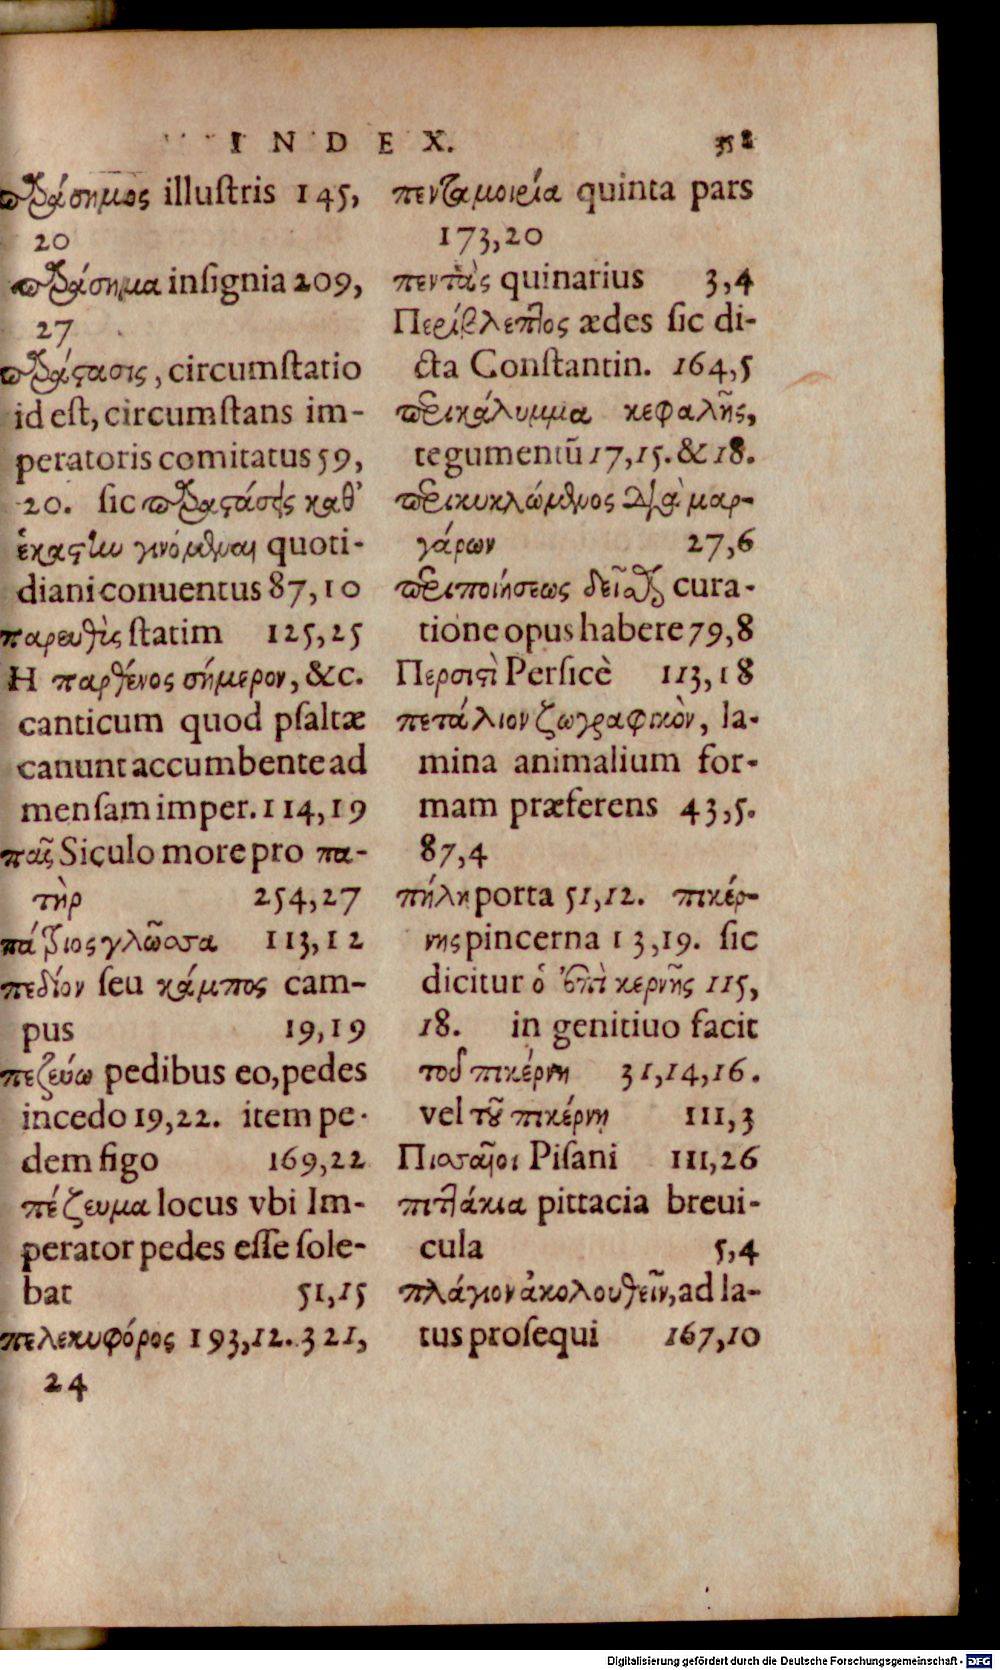 INDEX. 352
παράσημος illuſtris 145,
20
παράσημα inſignia 209,
27
παράςασις, circumſtatio
id eſt, circumſtans im-
peratoris comitatus 59,
20. ſic παραςάσεις καθ'
ἑκάςην γινόμεναι quoti-
diani conuentus 87,10
παρευθὶς ſtatim 125,25
Η παρθένος σήμερον, &c.
canticum quod pſaltæ
canunt accumbente ad
menſam imper. 114,19
παῖς Siculo more pro πα-
τὴρ 254,27
πάτριος γλῶσσα 113,12
πεδίον ſeu κάμπος cam-
pus 19,19
πεζεύω pedibus eo, pedes
incedo 19,22. item pe-
dem figo 169,22
πέζευμα locus vbi Im-
perator pedes eſſe ſole-
bat 51,15
πελεκυφόρος 193,12. 321,
24
πενταμοιρία quinta pars
173,20
πεντὰς quinarius 3,4
Περίβλεπτος ædes ſic di-
cta Conſtantin. 164,5
περικάλυμμα κεφαλῆς,
tegumentū 17,15. & 18.
περικυκλώμενος διὰ μαρ-
γάρων 27,6
περιποιήσεως δεῖσθαι cura-
tione opus habere 79,8
Περσιςὶ Perſicè 113,18
πετάλιον ζωγραφικὸν, la-
mina animalium for-
mam præferens 43,5.
87,4
πήλη porta 51,12. πικέρ-
νης pincerna 13,19. ſic
dicitur ὁ ἐπὶ κερνῆς 115,
18. in genitiuo facit
τοῦ πικέρνη 31,14,16.
vel τοῦ πικέρνη 111,3
Πισσαῖοι Piſani 111,26
πιττάκια pittacia breui-
cula 5,4
πλάγιον ἀκολουθεῖν, ad la-
tus proſequi 167,10
Digitalisierung gefördert durch die Deutsche Forschungsgemeinschaft - DFG